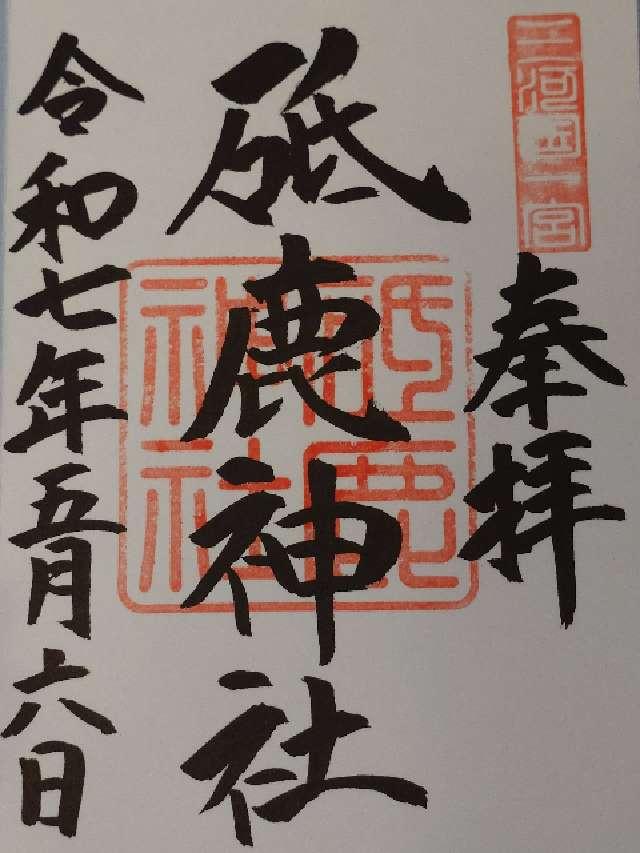 三河國一宮
奉拝
砥鹿神社
砥鹿神社
令和七年五月六日